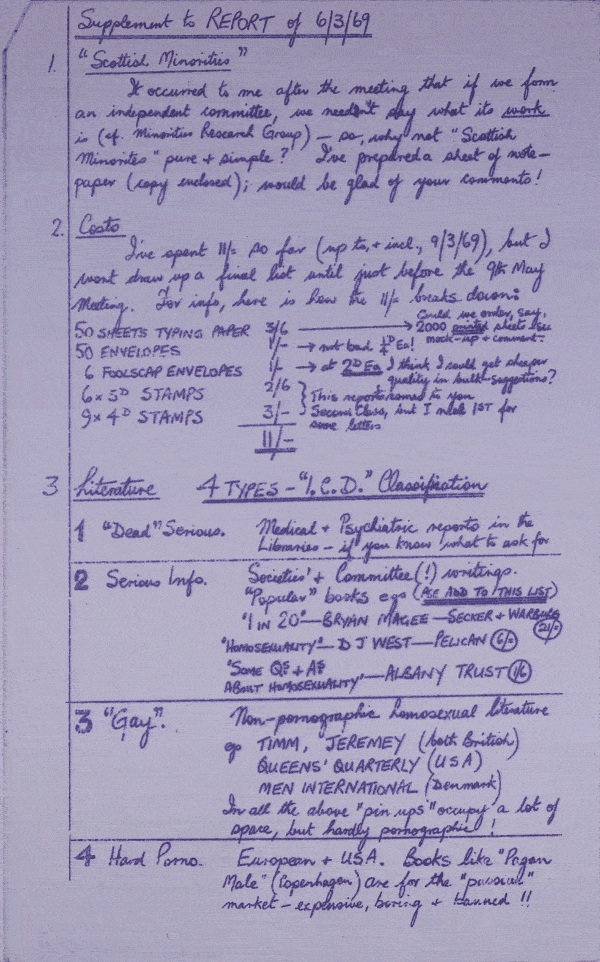 Supplement to REPORT of 6/3/69
1. "Scottish Minorities"
It occurred to me after the meeting that if we form
an independent committee, we needn't say what its work
is (cf. Minorities Research Group) – so, why not "Scottish
Minorites" pure + simple? I've prepared a sheet of note-
paper (copy enclosed); would be glad of your comments!
2. Costs
I've spent 11/= so far (up to, + incl., 9/3/69), but I
wont draw up a final list until just before the 9th May
Meeting. For info, here is how the 11/= breaks down:
50 SHEETS TYPING PAPER 3/6 → Could we order, say,
2000 printed sheets – see
mock-up + comment.
50 ENVELOPES 1/- → not bad ¼D Ea!
6 FOOLSCAP ENVELOPES 1/- → at 2D Ea I think I could get cheaper
quality in bulk – suggestions?
6 x 5D STAMPS 2/6 } This report comes to you
9 x 4D STAMPS 3/- Second Class, but I need 1ST for
some letters
11/-
3 Literature 4 TYPES – "I.C.D." Classification
1 "Dead" Serious. Medical + Psychiatric reports in the
Libraries – if you know what to ask for
2 Serious Info. Societies' + Committee (!) writings.
"Popular" books ego (PSE ADD TO THIS LIST)
"1 IN 20" – BRYAN MAGEE – SECKER + WARBURG
21/=
"HOMOSEXUALITY" – D J WEST – PELICAN 6/=
"SOME QS + AS
ABOUT HOMOSEXUALITY" – ALBANY TRUST 1/6
3 "Gay". Non-pornographic homosexual literature
eg TIMM, JEREMEY (both British)
QUEENS' QUARTERLY (USA)
MEN INTERNATIONAL (Denmark)
In all the above "pin ups" occupy a lot of
space, but hardly pornographic!
4 Hard Porno. European + USA. Books like "Pagan
Male" (Copenhagen) are for the
market – expensive, boring + banned!!